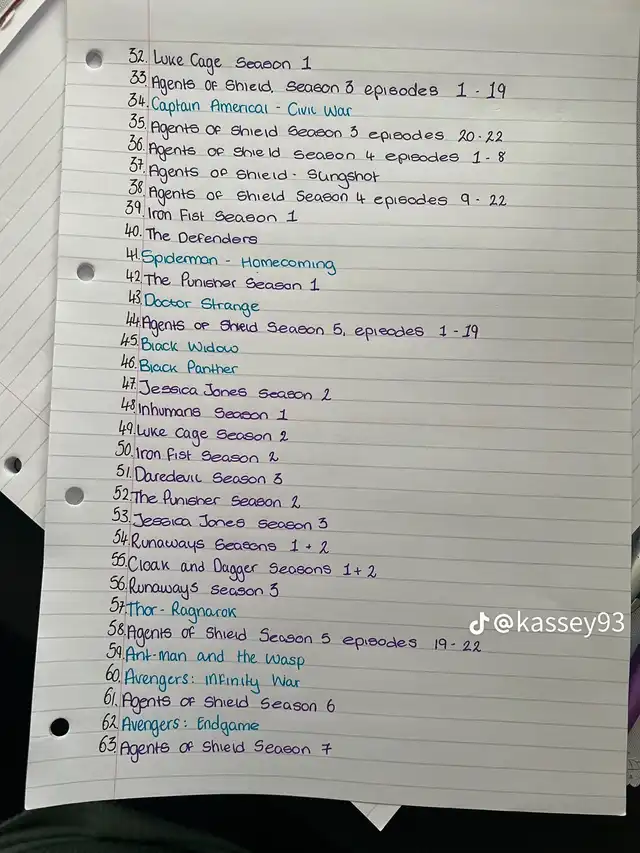 32. Luke Cage Season 1
33. Agents of Shield. Season 3 episodes 1 - 19
34. Captain Americai - Civil War
35. Agents of Shield Season 3 episodes 20-22
36. Agents of Shield Season 4 episodes 1 - 8
37. Agents of Shield - Slingshot
38. Agents of Shield Season 4 episodes 9 - 22
39. Iron Fist Season 1
40. The Defenders
41. Spiderman - Homecoming
42. The Punisher Season 1
43. Doctor Strange
44. Agents of Shield Season 5, episodes 1 - 19
45. Black Widow
46. Black Panther
47. Jessica Jones Season 2
48. Inhumans Season 1
49. Luke Cage Season 2
50. Iron Fist Season 2
51. Daredevil Season 3
52. The Punisher Season 2
53. Jessica Jones Season 3
54. Runaways Seasons 1 + 2
55. Cloak and Dagger Seasons 1 + 2
56. Runaways Season 3
57. Thor - Ragnarok
58. Agents of Shield Season 5 episodes 19 - 22
59. Ant-man and the Wasp
60. Avengers: Infinity War
61. Agents of Shield Season 6
62. Avengers: Endgame
63. Agents of Shield Season 7
@kassey93